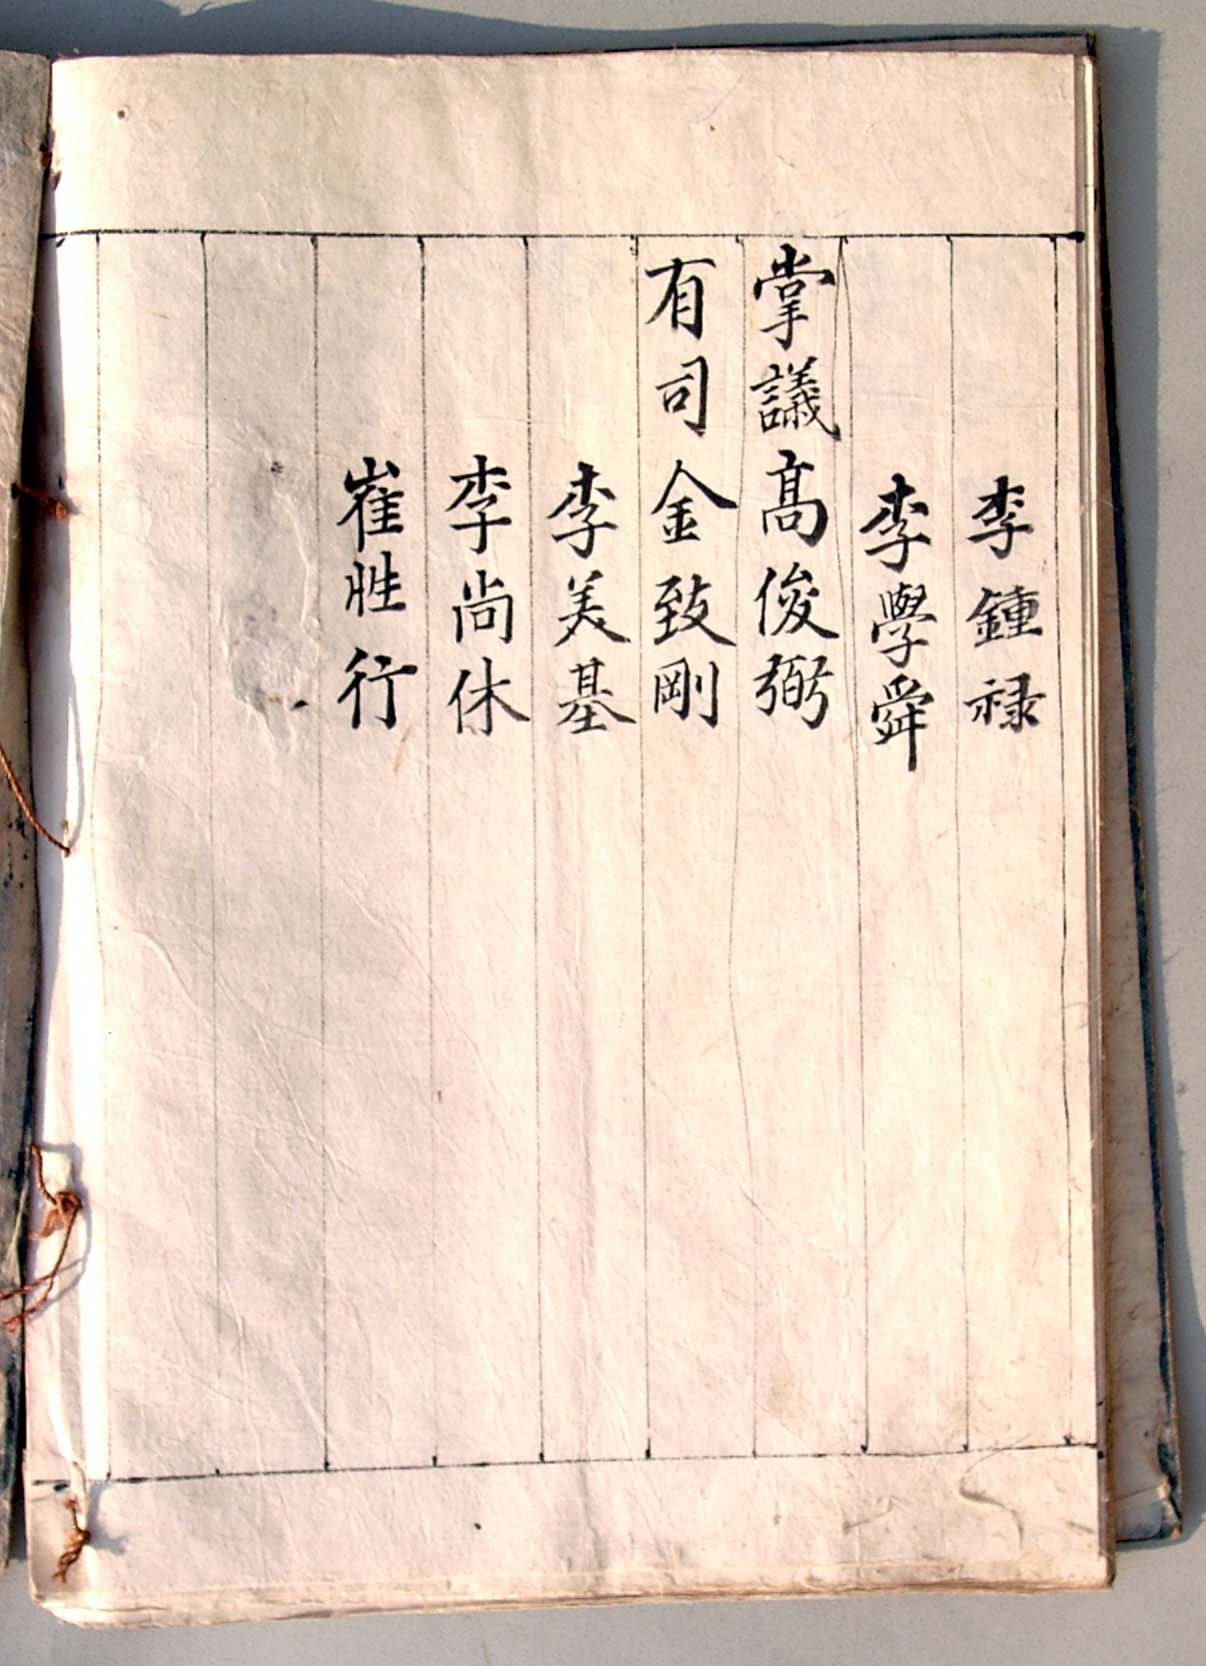 李鍾禄
李學舜
掌議高俊弼
有司金致剛
李美基
李尚休
崔胜行